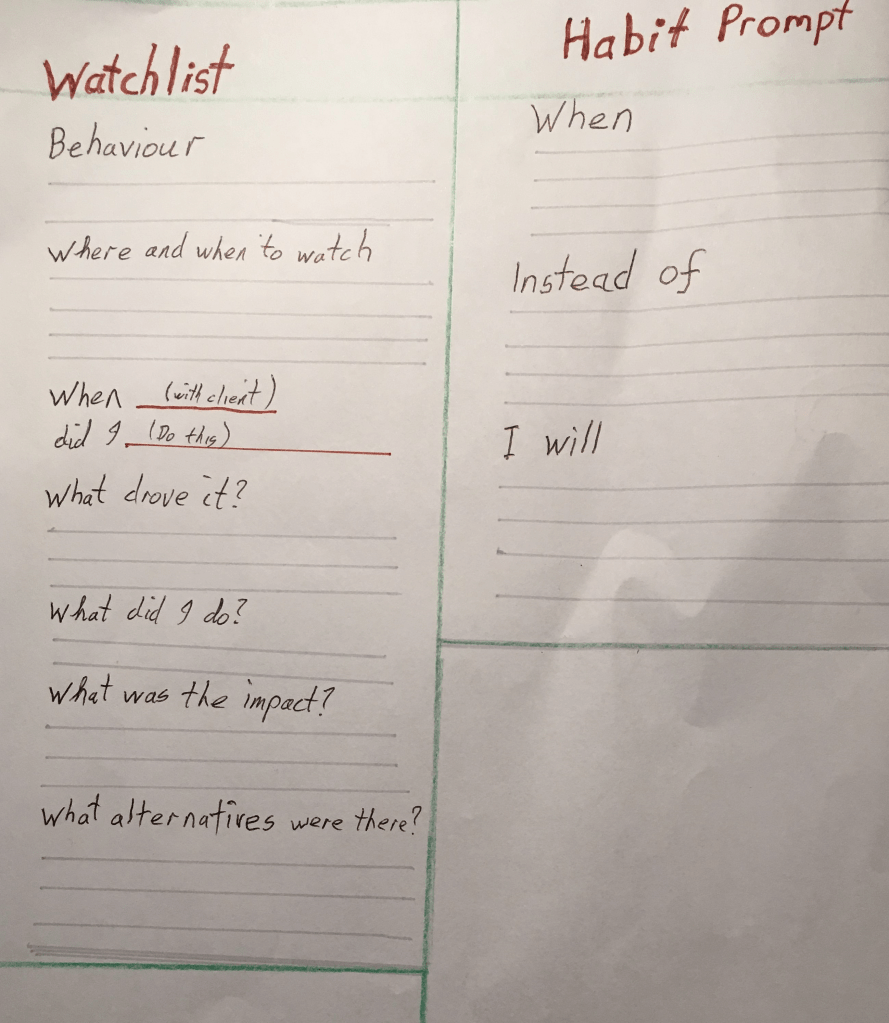 Watchlist
Behaviour
Where and when to watch
When (with client)
did I (Do this)
What drove it?
What did I do?
What was the impact?
What alternatives were there?
Habit Prompt
When
Instead of
I will